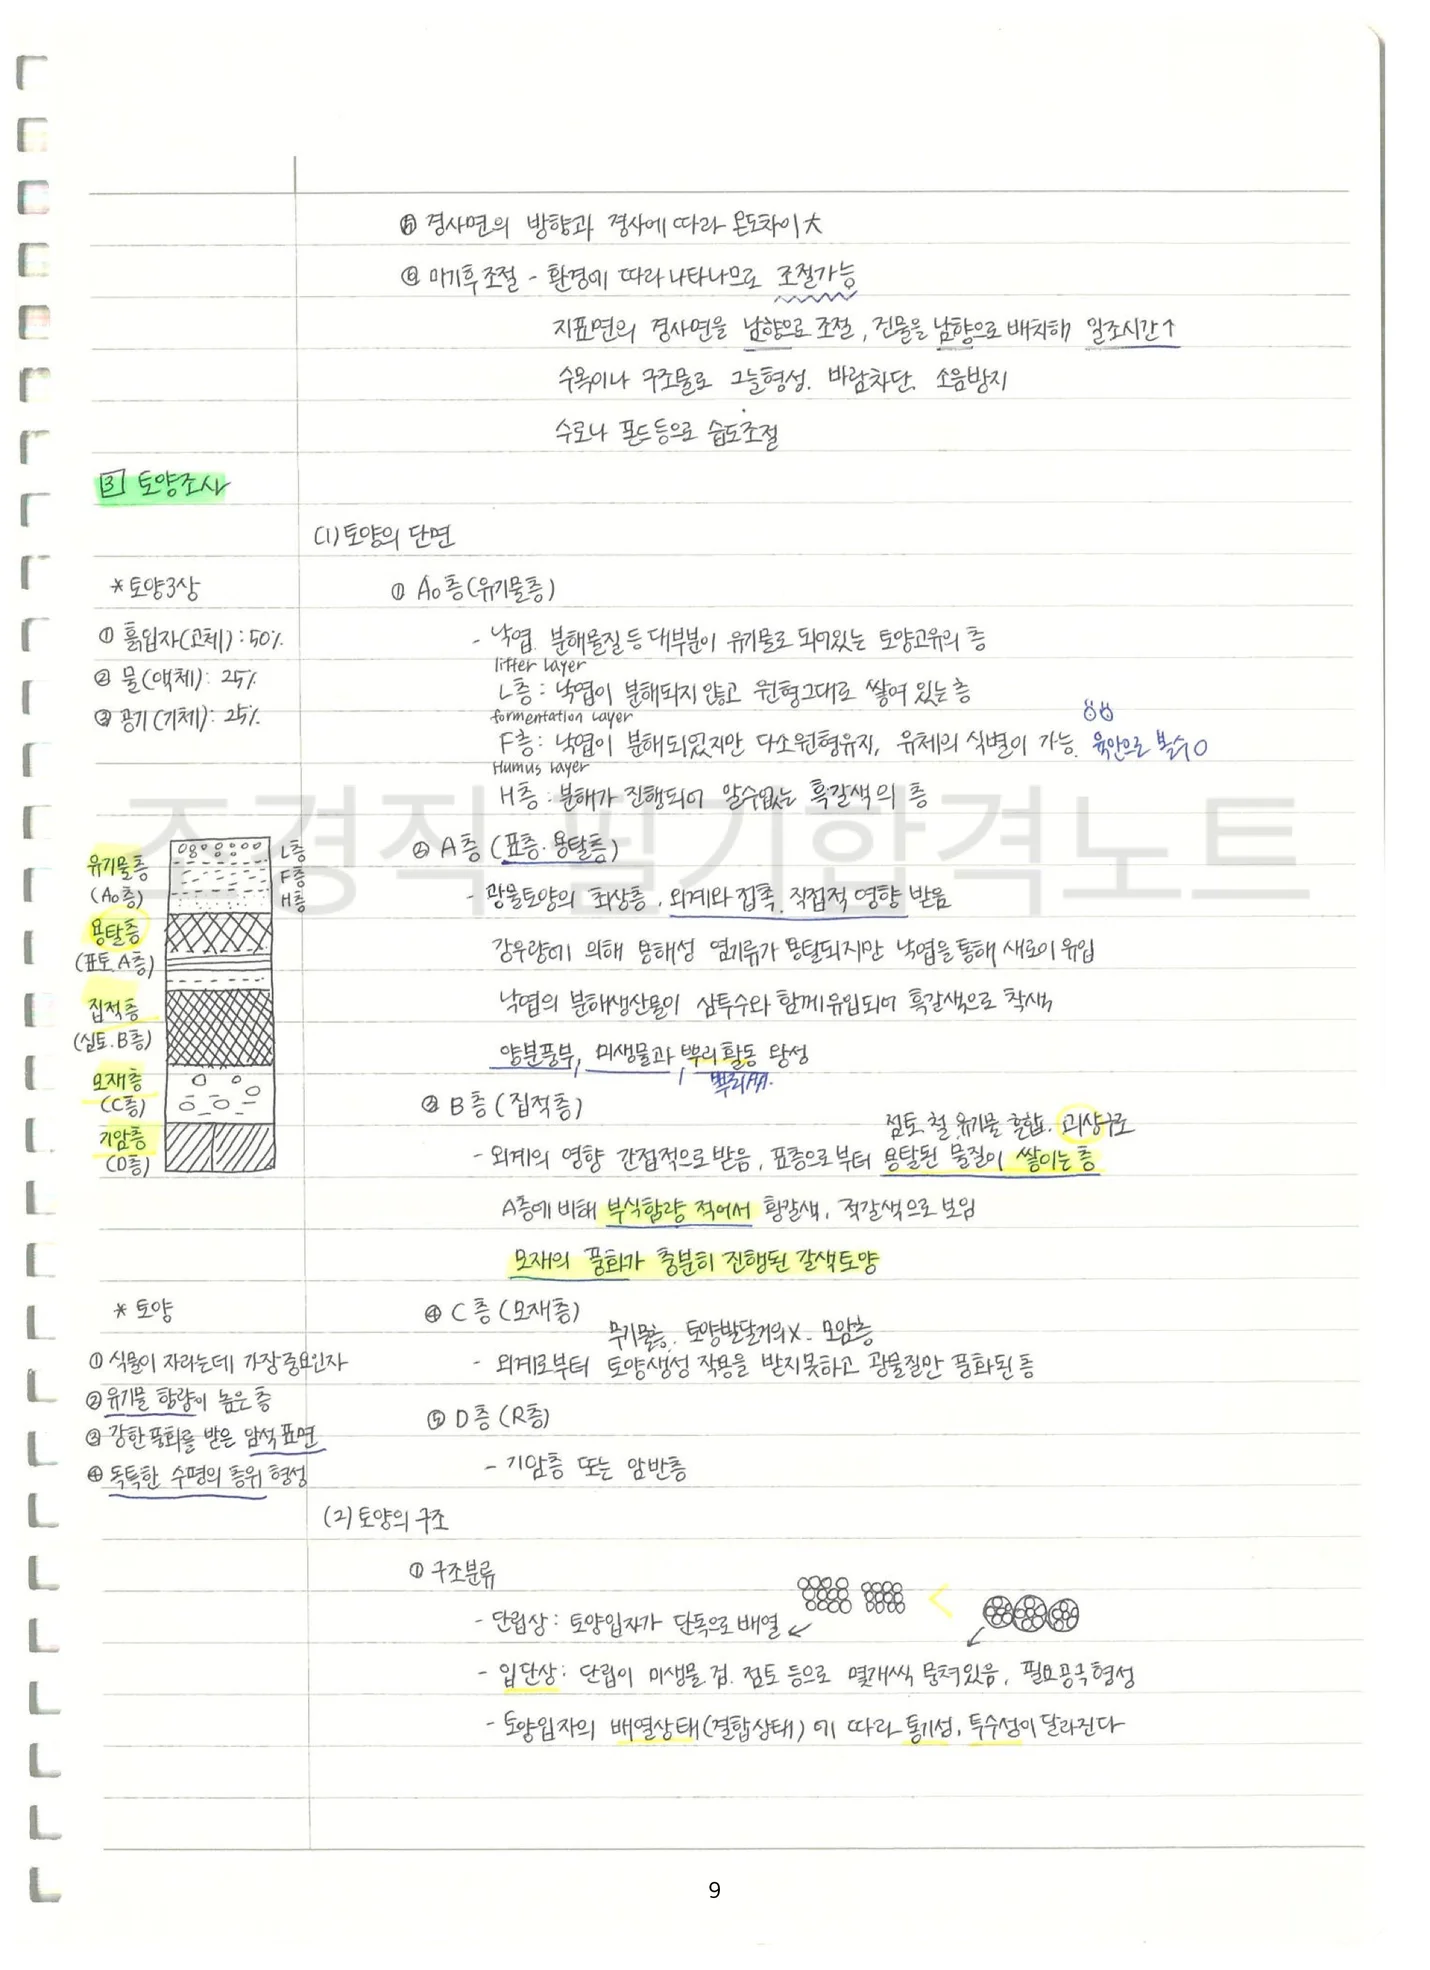 ⑤ 경사면의 방향과 경사에 따라 온도차이 大
⑥ 미기후조절 - 환경에 따라 나타나므로 조절가능
지표면의 경사면을 남향으로 조절, 건물을 남향으로 배치해 일조시간↑
수목이나 구조물로 그늘형성. 바람차단. 소음방지
수로나 폰드등으로 습도조절
3 토양조사
(1) 토양의 단면
* 토양3상
① 흙입자(고체) : 50%
② 물(액체) : 25%
③ 공기(기체) : 25%
① A₀층(유기물층)
- 낙엽. 분해물질등 대부분이 유기물로 되어있는 토양고유의 층
litter layer
L층 : 낙엽이 분해되지 않고 원형그대로 쌓여 있는 층
formentation layer
F층 : 낙엽이 분해되었지만 다소원형유지, 유체의 식별이 가능. 육안으로 볼수○
Humus layer
H층 : 분해가 진행되어 알수없는 흑갈색의 층
조경직 필기합격노트
유기물층
(A₀층)
L층
F층
H층
용탈층
(표토.A층)
집적층
(심토.B층)
모재층
(C층)
기암층
(D층)
② A층 (표층.용탈층)
- 광물토양의 최상층, 외계와 접촉. 직접적 영향 받음
강우량에 의해 용해성 염기류가 용탈되지만 낙엽을 통해 새로이 유입
낙엽의 분해생산물이 삼투수와 함께유입되어 흑갈색으로 착색
양분풍부, 미생물과, 뿌리활동 왕성
③ B층 (집적층)
점토.철.유기물 혼합. 괴상구조
- 외계의 영향 간접적으로 받음, 표층으로부터 용탈된 물질이 쌓이는 층
A층에 비해 부식함량 적어서 황갈색, 적갈색으로 보임
모재의 풍화가 충분히 진행된 갈색토양
* 토양
① 식물이 자라는데 가장중요인자
② 유기물 함량이 높은 층
③ 강한풍화를 받은 암석표면
④ 독특한 수평의 층위 형성
④ C층 (모재층)
무기물층. 토양발달거의X. 모암층
- 외계로부터 토양생성 작용을 받지못하고 광물질만 풍화된 층
⑤ D층 (R층)
- 기암층 또는 암반층
(2) 토양의 구조
① 구조분류
<
- 단립상 : 토양입자가 단독으로 배열
- 입단상 : 단립이 미생물 검. 점토 등으로 몇개씩 뭉쳐있음, 필요공극형성
- 토양입자의 배열상태(결합상태)에 따라 통기성, 투수성이 달라진다
9